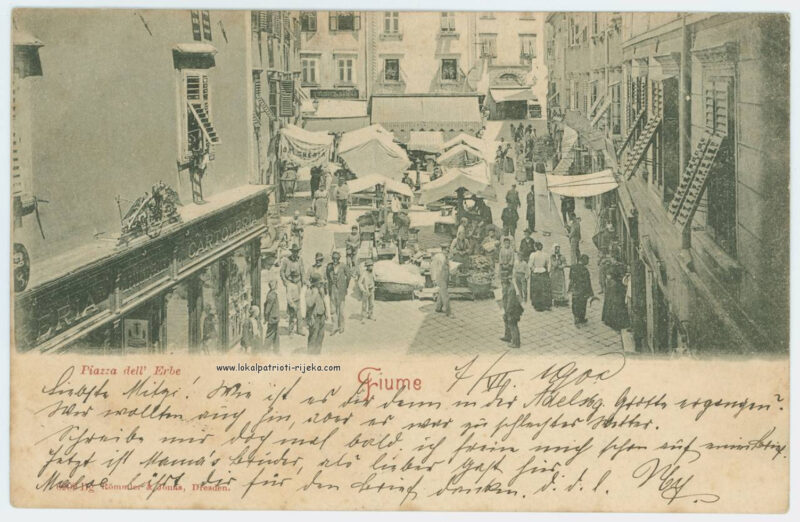 CARTOLERIA
ERIA
Piazza dell' Erbe
www.lokalpatrioti-rijeka.com
Fiume
7/VII. 1900
Liebste Mitzi! Wie ist es dir denn in der Adelsbg. Grotte ergangen?
Wir wollten auch hin, aber es war zu schlechtes Wetter.
Schreibe mir doch mal bald ich freue mich schon auf einen Brief.
Jetzt ist Mama's Bruder, als lieber Gast hier.
läßt dir für den Brief danken. d. d. l.
Römmler & Jonas, Dresden.